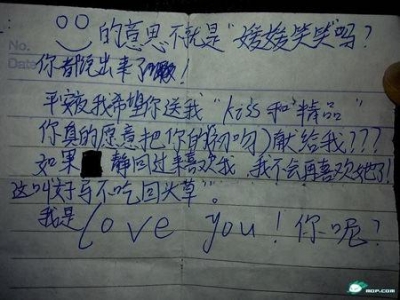 No.
Date
的意思不就是"媛媛笑笑"吗?
你都说出来了!
平安夜我希望你送我"kiss和"精品"
你真的愿意把你的初吻)献给我???
如果 静回过来喜欢我,我不会再喜欢她了!
这叫好马不吃回头草"。
我是Love you!你呢?
MOP.COM